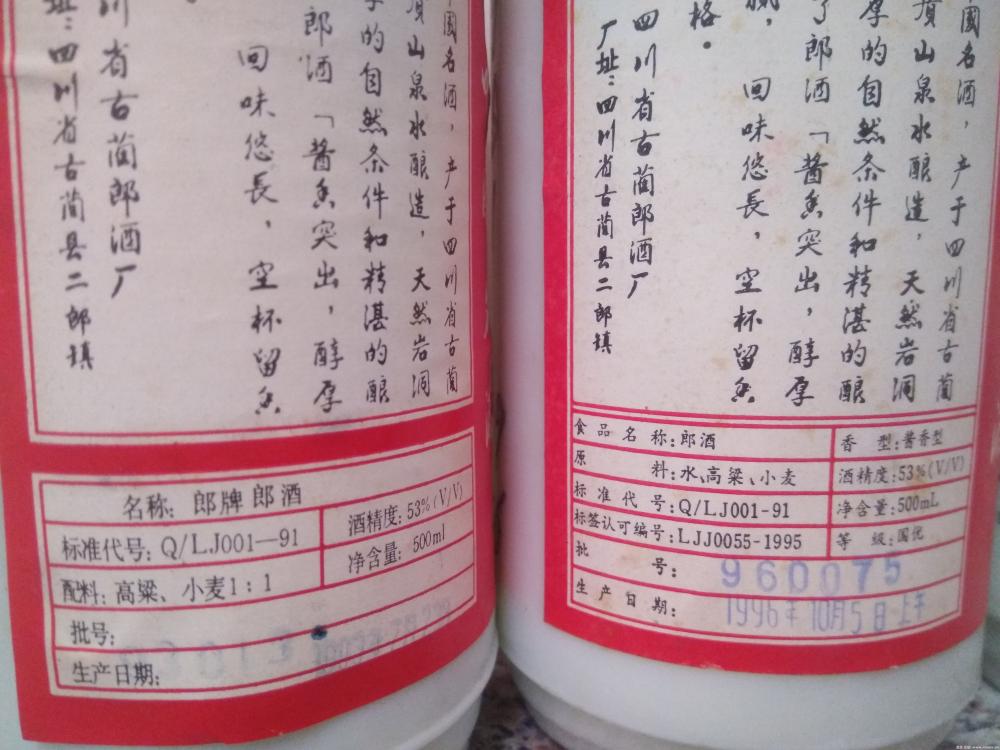 國名酒，产于四川省古蔺
山泉水酿造，天然岩洞
的自然条件和精湛的酿
郎酒「酱香突出，醇厚
回味悠長，空杯留香
川省古蔺郎酒厂
址：四川省古蔺县二郎镇
名称：郎牌郎酒
酒精度：53%(V/V)
标准代号：Q/LJ001—91
净含量：500ml
配料：高粱、小麦1：1
批号：
生产日期：
國名酒，产于四川省古蔺
頂山泉水酿造，天然岩洞
厚的自然条件和精湛的酿
了郎酒「酱香突出，醇厚
腻，回味悠長，空杯留香
格。
四川省古蔺郎酒厂
厂址：四川省古蔺县二郎镇
食品名称：郎酒
香型：酱香型
原料：水、高粱、小麦
酒精度：53%(V/V)
标准代号：Q/LJ001-91
净含量：500mL
标签认可编号：LJJ0055-1995
等级：国优
批号：960075
生产日期：1996年10月5日上午